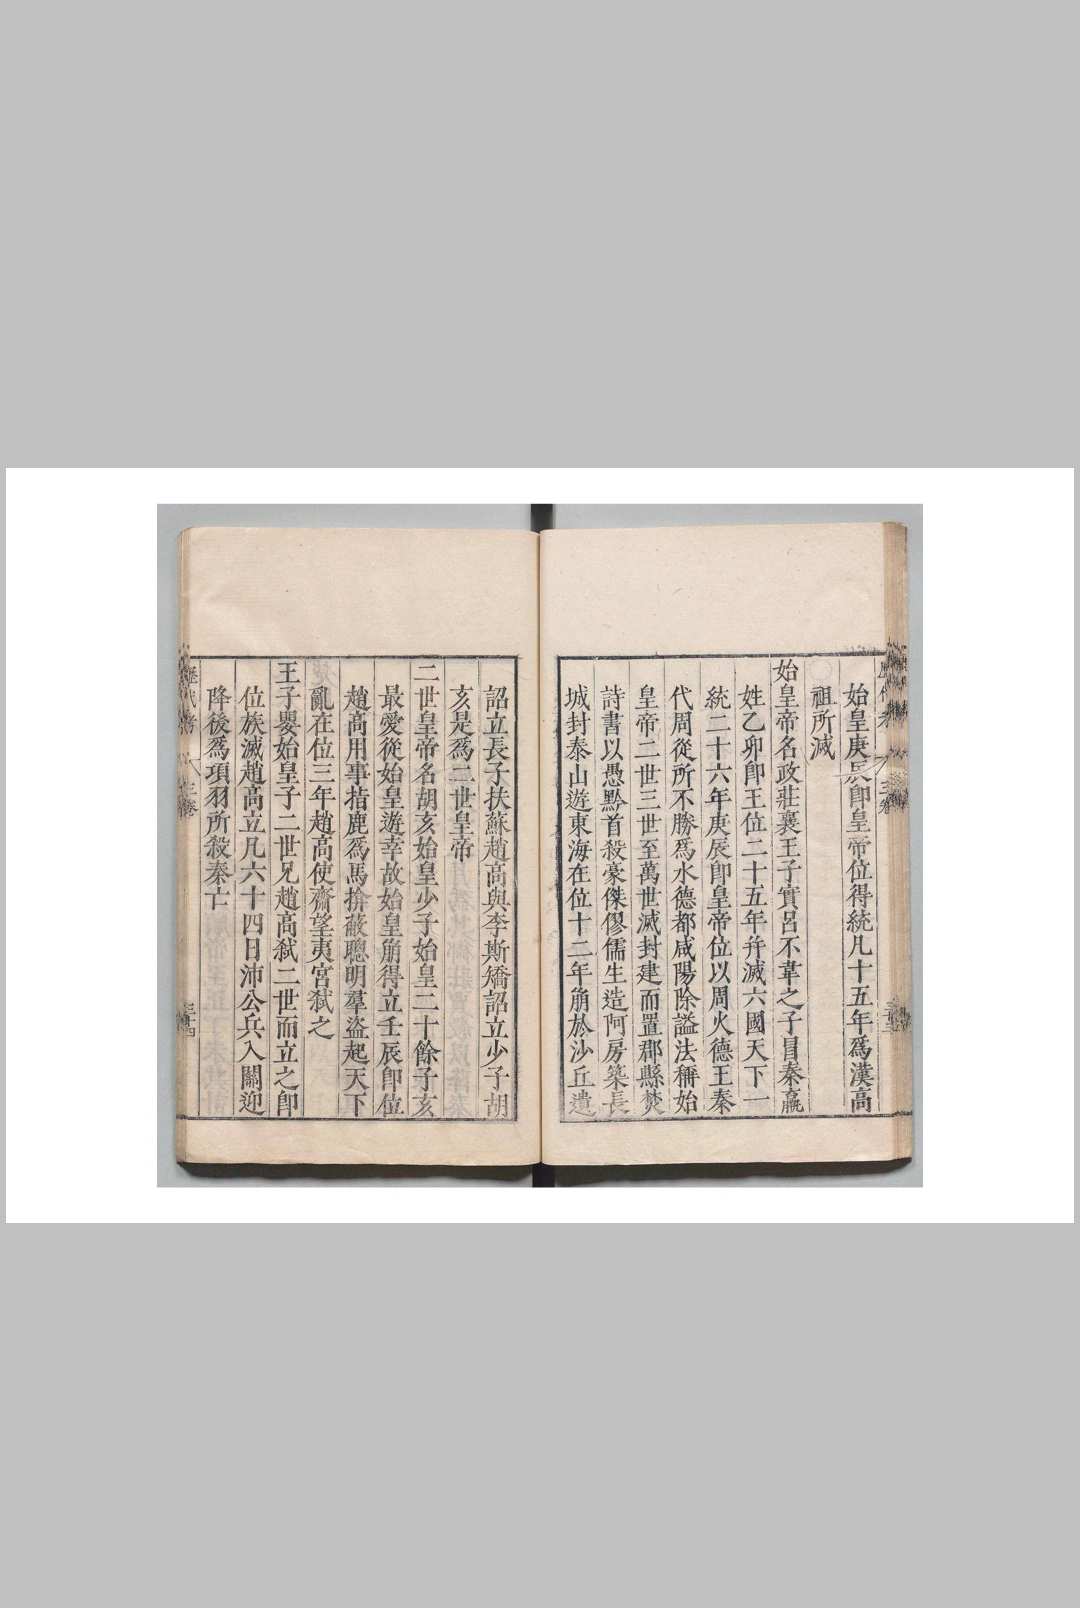 始皇庚辰卽皇帝位得統凡十五年爲漢高
祖所滅
始皇帝名政莊襄王子實呂不韋之子冒秦嬴
姓乙卯卽王位二十五年幷滅六國天下一
統二十六年庚辰卽皇帝位以周火德王秦
代周從所不勝爲水德都咸陽除謚法稱始
皇帝二世三世至萬世滅封建而置郡縣焚
詩書以愚黔首殺豪傑僇儒生造阿房築長
城封泰山遊東海在位十二年崩於沙丘遺
詔立長子扶蘇趙高與李斯矯詔立少子胡
亥是爲二世皇帝
二世皇帝名胡亥始皇少子始皇二十餘子亥
最愛從始皇遊幸故始皇崩得立壬辰卽位
趙高用事指鹿爲馬揜蔽聰明羣盜起天下
亂在位三年趙高使齋望夷宮弒之
王子嬰始皇子二世兄趙高弒二世而立之卽
位族滅趙高立凡六十四日沛公兵入關迎
降後爲項羽所殺秦亡
歷代考
三卷
三十四